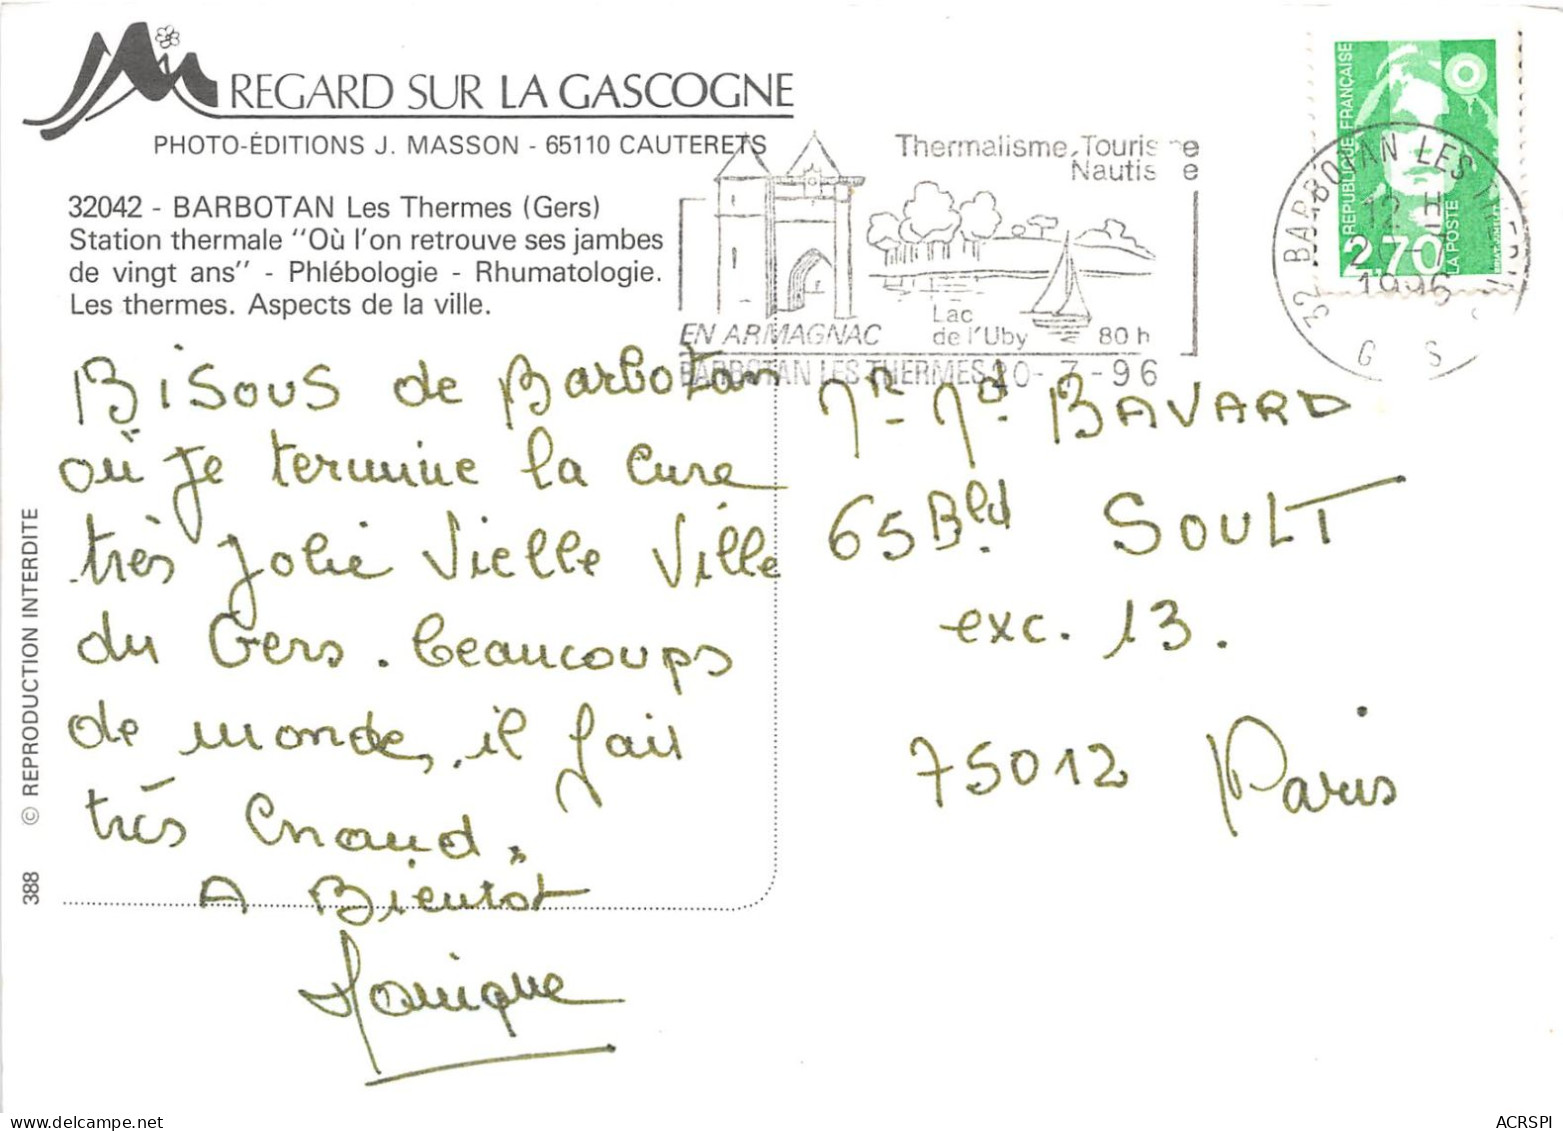 REGARD SUR LA GASCOGNE
PHOTO-ÉDITIONS J. MASSON - 65110 CAUTERETS
32042 - BARBOTAN Les Thermes (Gers)
Station thermale "Où l'on retrouve ses jambes
de vingt ans" - Phlébologie - Rhumatologie.
Les thermes. Aspects de la ville.
Thermalisme, Tourisme
Nautisme
EN ARMAGNAC
Lac
de l'Uby
80 h
BARBOTAN LES THERMES 10-7-96
RÉPUBLIQUE FRANÇAISE
2,70
LA POSTE
32 BARBOTAN LES THERMES
12 H
1996
G S
Bisous de Barbotan
où je termine la cure
très jolie Vielle Ville
du Gers. beaucoups
de monde, il fait
très Chaud.
A Bientôt
Monique
Mr. Md. BAVARD
65 Bld. SOULT
exc. 13.
75012 Paris
© REPRODUCTION INTERDITE
388
ACRSPI